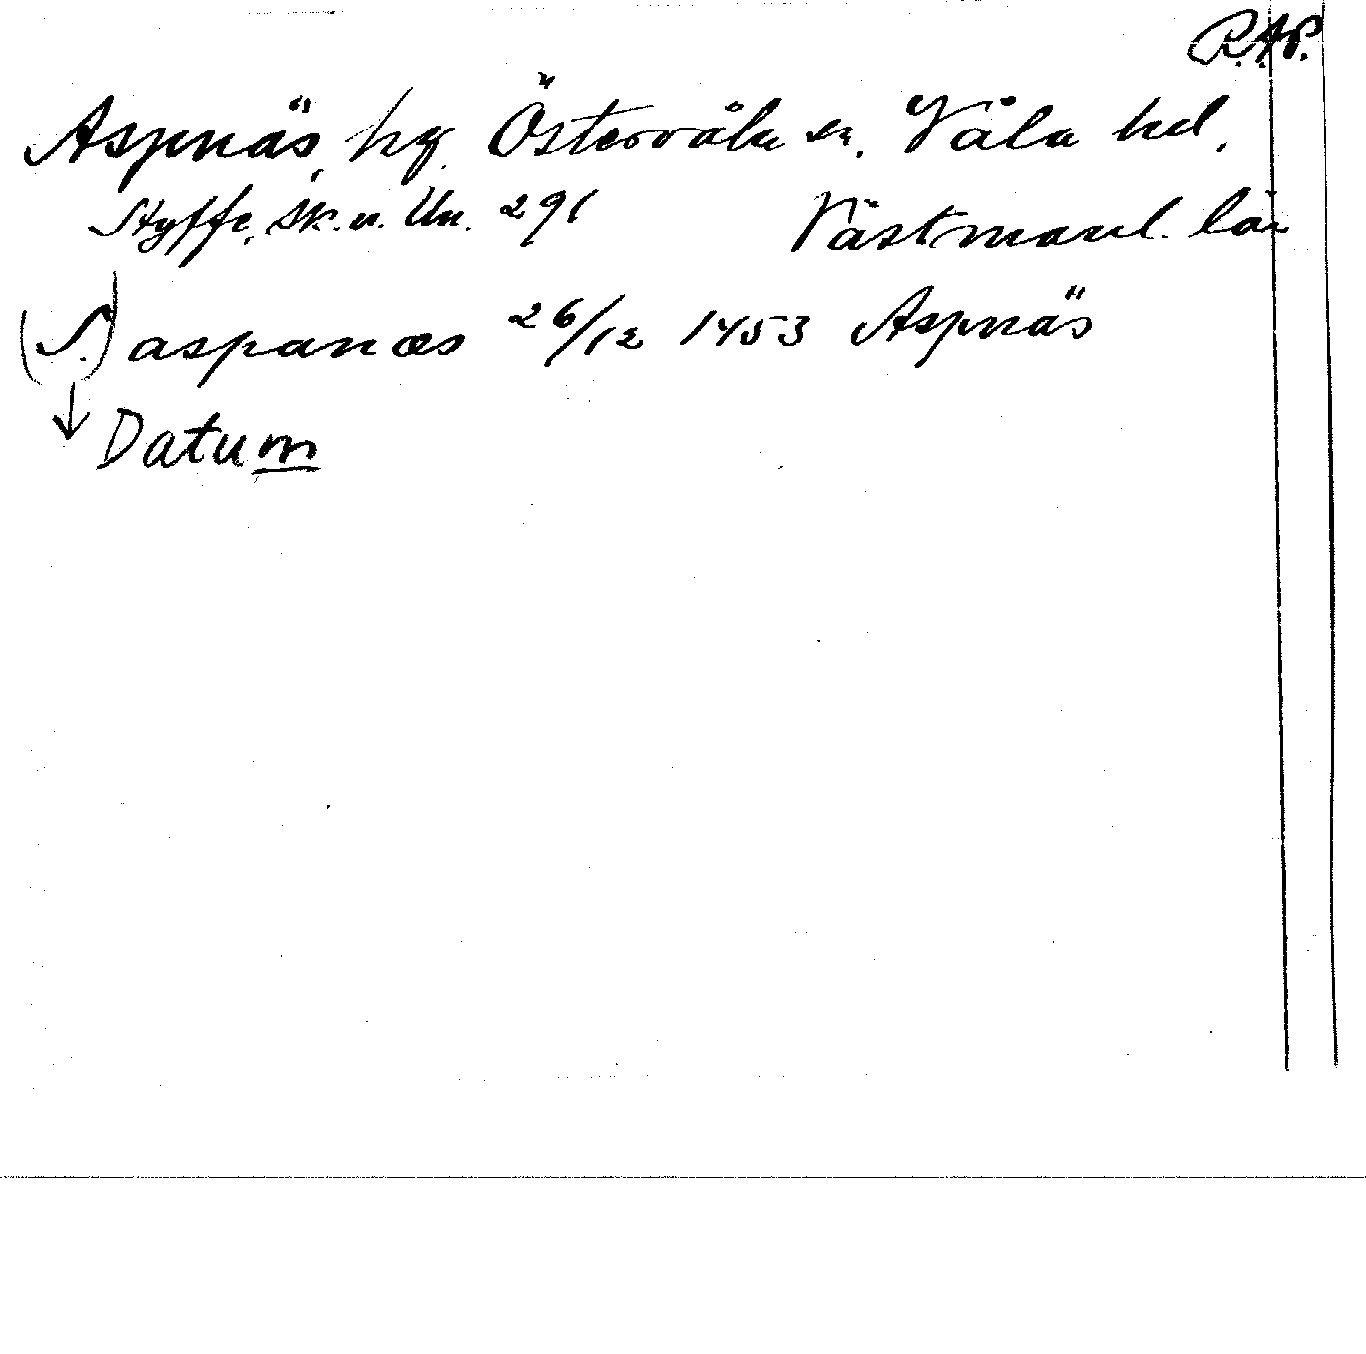 R.A.P.
Aspnäs, hg. Östervåla sn. Våla hd.
Styffe, Sk. u. Un. 291 Västmanl. län
(S.) aspanæs 26/12 1453 Aspnäs
↓ Datum